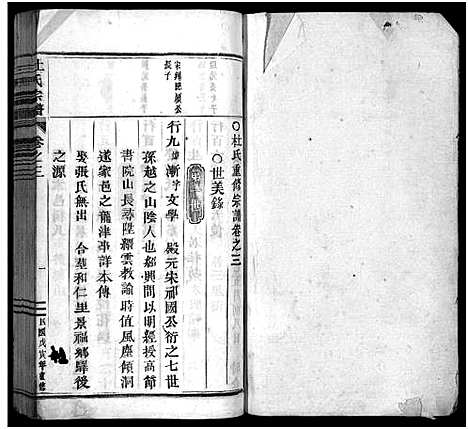 杜氏重修宗譜卷之三
世美錄
宋
長子
行九 漸字文學 殿元宋祁國公衍之七世
孫越之山陰人也紹興間以明經授高節
書院山長尋陞縉雲教諭時值風塵傾洞
遂家邑之龍津事詳本傳
娶張氏無出 合葬和仁里景福鄉驛後
之源
杜氏宗譜
卷之三
一
民國戊寅年重修